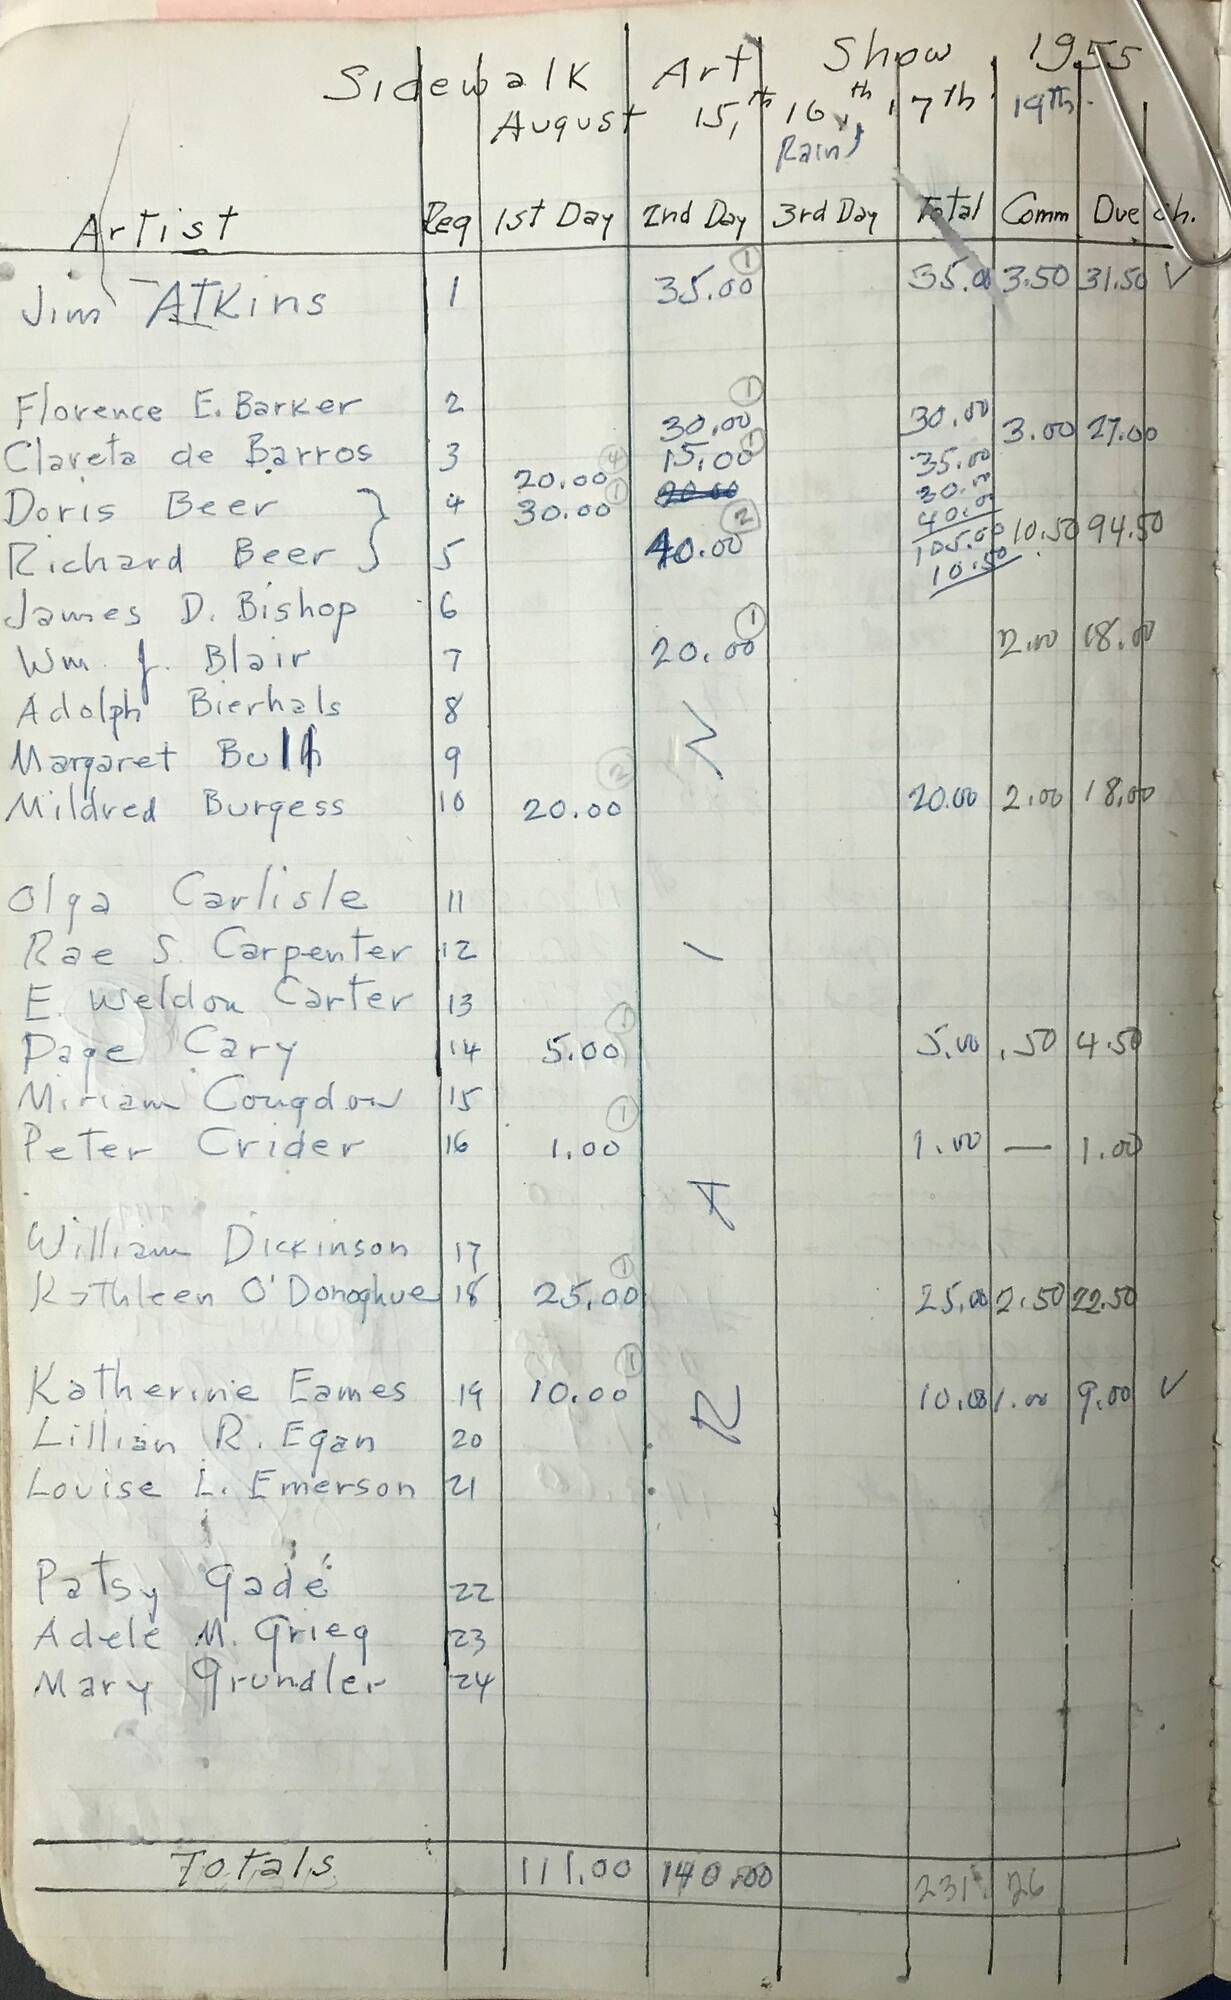 Sidewalk Art Show 1955
August 15,th 16,th 17th 19th
Rain
Artist Reg 1st Day 2nd Day 3rd Day Total Comm Due ch.
Jim Atkins 1 35.00 1 35.00 3.50 31.50 V
Florence E. Barker 2 30.00 1 30.00 3.00 27.00
Clareta de Barros 3 20.00 4 15.00 1 35.00
Doris Beer 4 30.00 1 20.00 30.00
Richard Beer 5 40.00 2 40.00
105.00 10.50 94.50
10.50
James D. Bishop 6
Wm. J. Blair 7 20.00 1 2.00 18.00
Adolph Bierhals 8
Margaret 9
Mildred Burgess 10 20.00 2 20.00 2.00 18.00
Olga Carlisle 11
Rae S. Carpenter 12
E. Weldon Carter 13
Page Cary 14 5.00 1 5.00 .50 4.50
Miriam Congdon 15
Peter Crider 16 1.00 1 1.00 — 1.00
William Dickinson 17
Kathleen O'Donoghue 18 25.00 1 25.00 2.50 22.50
Katherine Eames 19 10.00 1 10.00 1.00 9.00 V
Lillian R. Egan 20
Louise L. Emerson 21
R A I N
Patsy Gadé 22
Adele M. Grieg 23
Mary Grundler 24
Totals 111.00 140.00 231 26